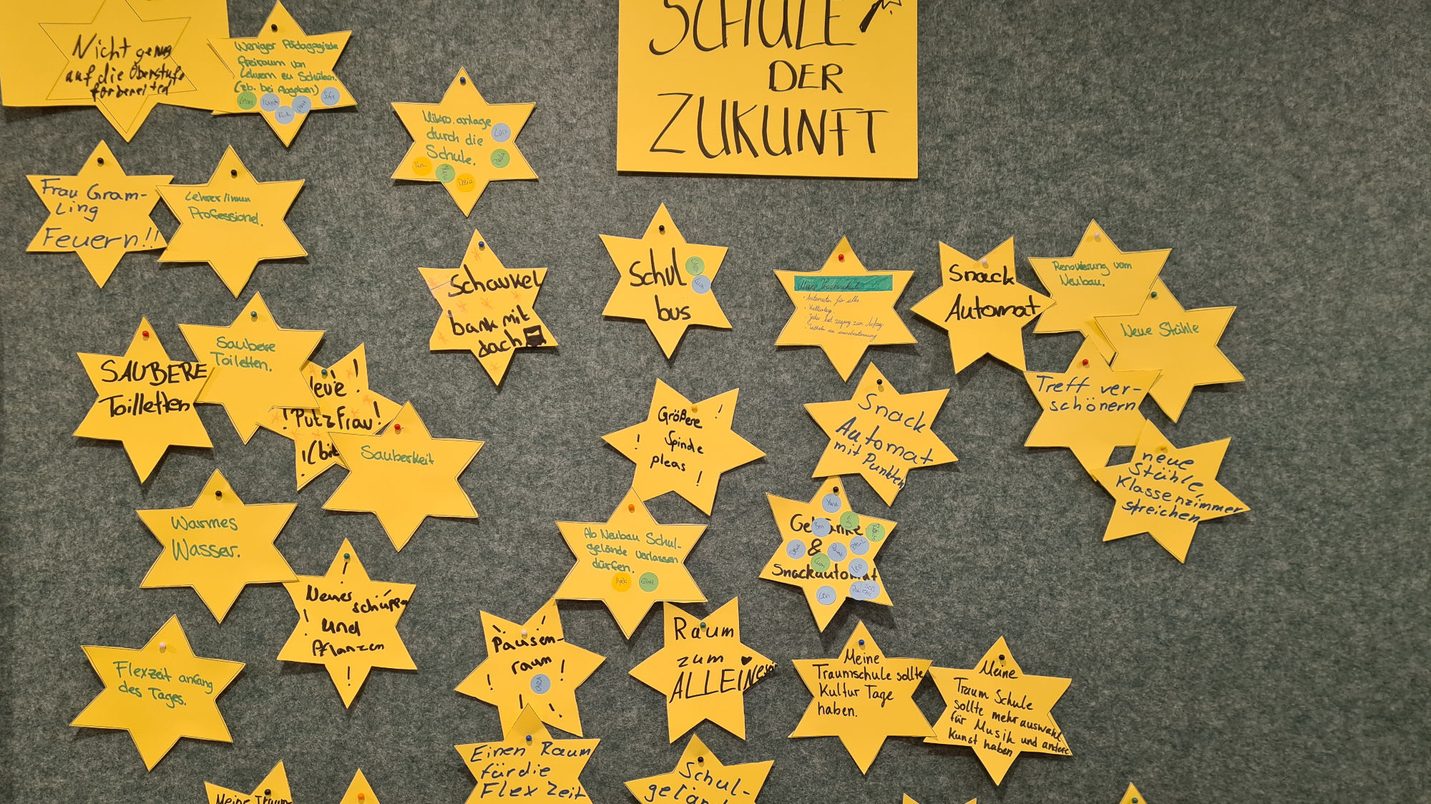 SCHULE
DER
ZUKUNFT
Nicht genug
auf die Oberstufe
forbereited
Weniger Pädagogische
Freiraum von
Lehrern zu Schülern
(zb. bei Abgaben)
Mikro.anlage
durch die
Schule.
Frau Gram-
ling
Feuern!!
Lehrer/innen
Professionel.
Schaukel
bank mit
dach
Schul
bus
Automaten für alle
Snack
Automat
Renovierung vom
Neubau.
Neue Stühle
SAUBERE
Toilletten
Saubere
Toiletten.
!Putzfrau!
Sauberkeit
Größere !
! Spinde
pleas !
Snack
Automat
mit Punkten
Treff ver-
schönern
neue
Stühle,
Klassenzimmer
streichen
Warmes
Wasser.
Ab Neubau Schul-
gelände verlassen
dürfen.
&
Snackautomat
!
Neues
! und
Pflanzen
!
Flexzeit anfang
des Tages.
Pausen-
raum !
Raum
zum
ALLEIN
Meine
Traumschule sollte
Kultur Tage
haben.
Meine
Traum Schule
sollte mehr auswahl
für Musik und andere
Kunst haben
Einen Raum
für die
Flex Zeit
Schul-
Meine